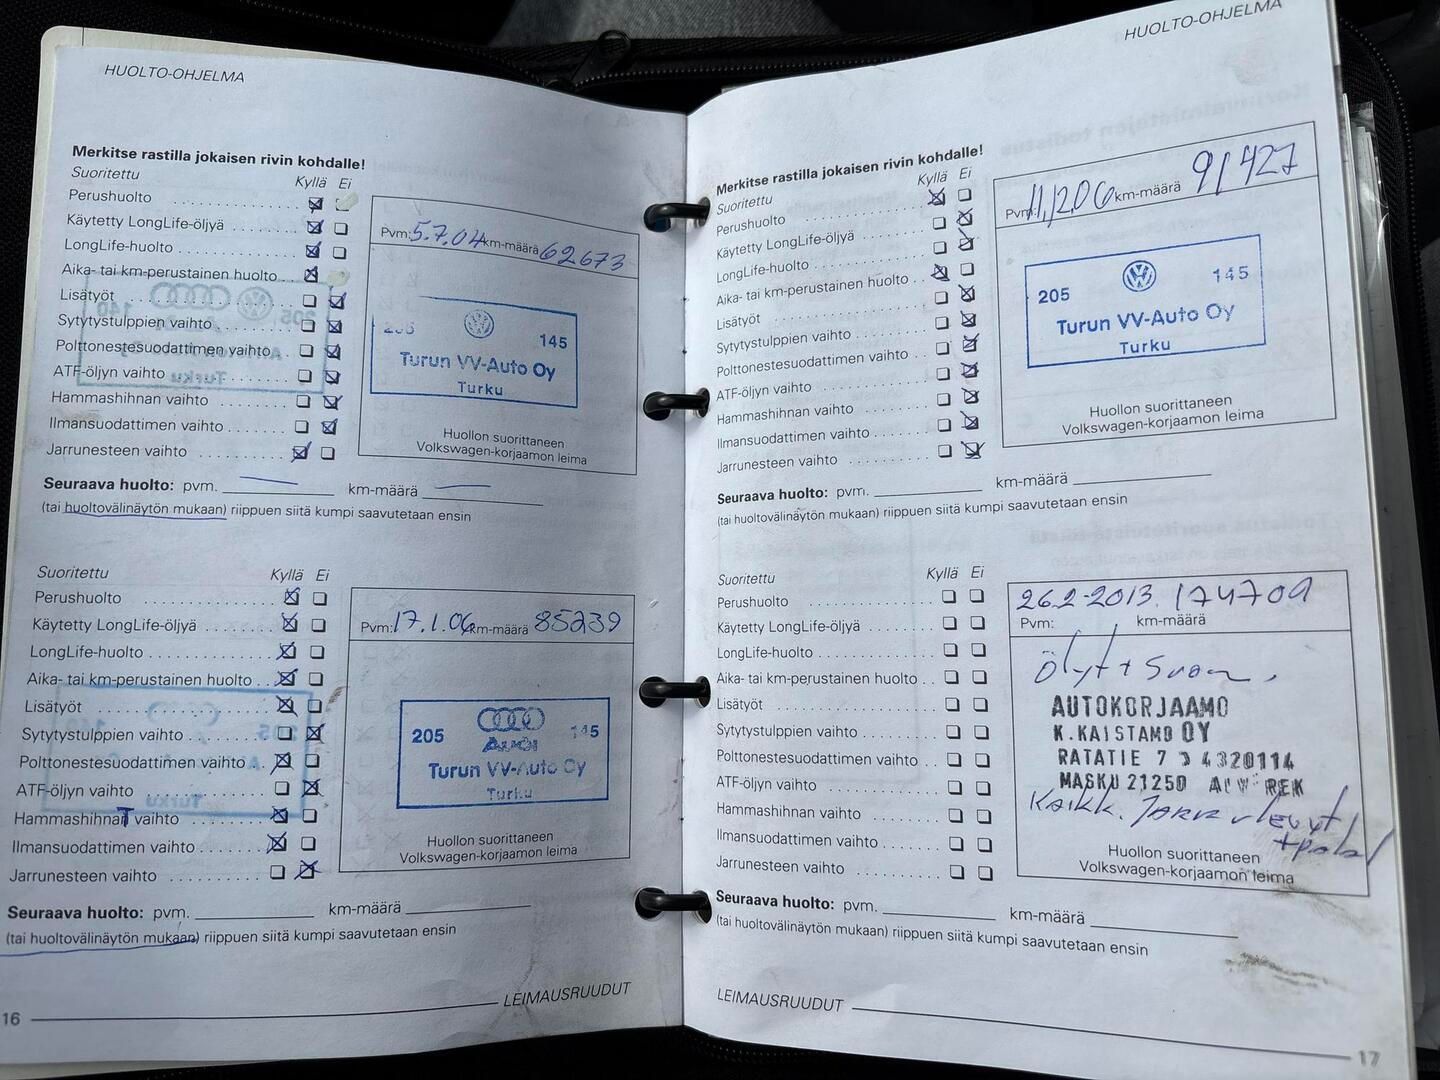 HUOLTO-OHJELMA
Merkitse rastilla jokaisen rivin kohdalle!
Suoritettu Kyllä Ei
Perushuolto
Käytetty LongLife-öljyä
LongLife-huolto
Aika- tai km-perustainen huolto
Lisätyöt
Sytytystulppien vaihto
Polttonestesuodattimen vaihto
ATF-öljyn vaihto
Hammashihnan vaihto
Ilmansuodattimen vaihto
Jarrunesteen vaihto
Pvm: 5.7.04 km-määrä 62673
205 145
Turun VV-Auto Oy
Turku
Huollon suorittaneen
Volkswagen-korjaamon leima
Seuraava huolto: pvm. km-määrä
(tai huoltovälinäytön mukaan) riippuen siitä kumpi saavutetaan ensin
Suoritettu Kyllä Ei
Perushuolto
Käytetty LongLife-öljyä
LongLife-huolto
Aika- tai km-perustainen huolto
Lisätyöt
Sytytystulppien vaihto
Polttonestesuodattimen vaihto
ATF-öljyn vaihto
HammashihnaT vaihto
Ilmansuodattimen vaihto
Jarrunesteen vaihto
Pvm: 17.1.06 km-määrä 85239
205 145
Audi
Turun VV-Auto Oy
Turku
Huollon suorittaneen
Volkswagen-korjaamon leima
Seuraava huolto: pvm. km-määrä
(tai huoltovälinäytön mukaan) riippuen siitä kumpi saavutetaan ensin
LEIMAUSRUUDUT
16
HUOLTO-OHJELMA
Merkitse rastilla jokaisen rivin kohdalle!
Suoritettu Kyllä Ei
Perushuolto
Käytetty LongLife-öljyä
LongLife-huolto
Aika- tai km-perustainen huolto
Lisätyöt
Sytytystulppien vaihto
Polttonestesuodattimen vaihto
ATF-öljyn vaihto
Hammashihnan vaihto
Ilmansuodattimen vaihto
Jarrunesteen vaihto
Pvm: 11,12.06 km-määrä 91427
205 145
Turun VV-Auto Oy
Turku
Huollon suorittaneen
Volkswagen-korjaamon leima
Seuraava huolto: pvm. km-määrä
(tai huoltovälinäytön mukaan) riippuen siitä kumpi saavutetaan ensin
Suoritettu Kyllä Ei
Perushuolto
Käytetty LongLife-öljyä
LongLife-huolto
Aika- tai km-perustainen huolto
Lisätyöt
Sytytystulppien vaihto
Polttonestesuodattimen vaihto
ATF-öljyn vaihto
Hammashihnan vaihto
Ilmansuodattimen vaihto
Jarrunesteen vaihto
26.2-2013. 174709
Pvm: km-määrä
Öljyt + Suod.
AUTOKORJAAMO
K.KAISTAMO OY
RATATIE 7 4320114
MASKU 21250 ALV REK
Kaikk. Jarrulevyt
+palat
Huollon suorittaneen
Volkswagen-korjaamon leima
Seuraava huolto: pvm. km-määrä
(tai huoltovälinäytön mukaan) riippuen siitä kumpi saavutetaan ensin
LEIMAUSRUUDUT
17